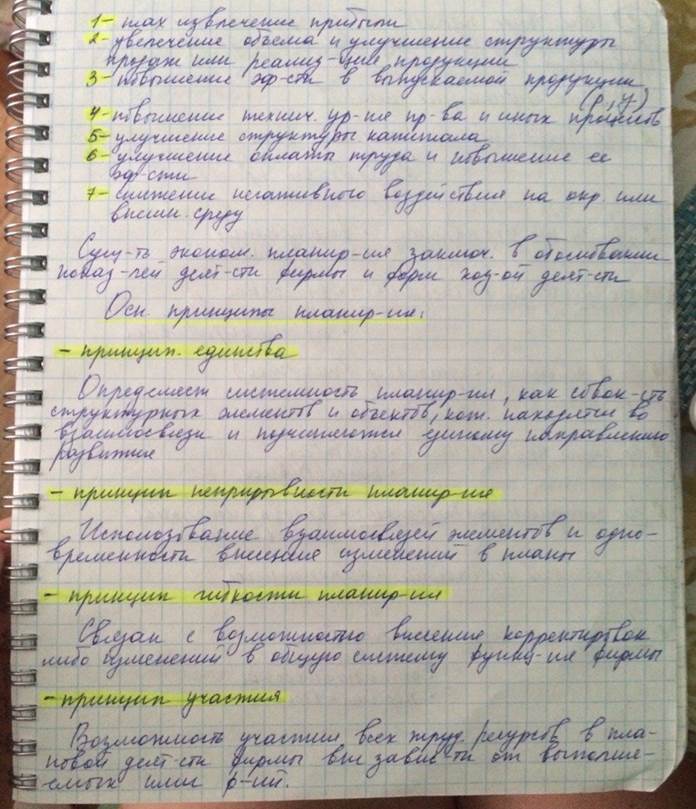 1- max извлечение прибыли
2- увелечение объема и улучшение структуры
продаж или реализ-ции продукции
3- повышение эф-сти в выпускаемой продукции
4- повышение технич. ур-ня пр-ва и иных процессов
5- улучшение структуры капитала
6- улучшение оплаты труда и повышение ее
эф-сти
7- снижение негативного воздействия на окр. или
внешн. среду
Сущ-ть эконом. планир-ия заключ. в обосновании
показ-лей деят-сти фирмы и форм хоз-ой деят-сти
Осн. принципы планир-ия:
- принцип единства
Определяет системность планир-ия, как совок-сть
структурных элементов и объектов, кот. находятся во
взаимосвязи и подчиняются единому направлению
развития
- принцип непрерывности планир-ия
Использование взаимосвязей элементов и одно-
временности внесения изменений в планы
- принцип гибкости планир-ия
Связан с возможностью внесения корректировок
либо изменений в общую систему функц-ия фирмы
- принцип участия
Возможность участия всех труд. ресурсов в пла-
новой деят-сти фирмы вне завис-ти от выполня-
емых ими ф-ий.